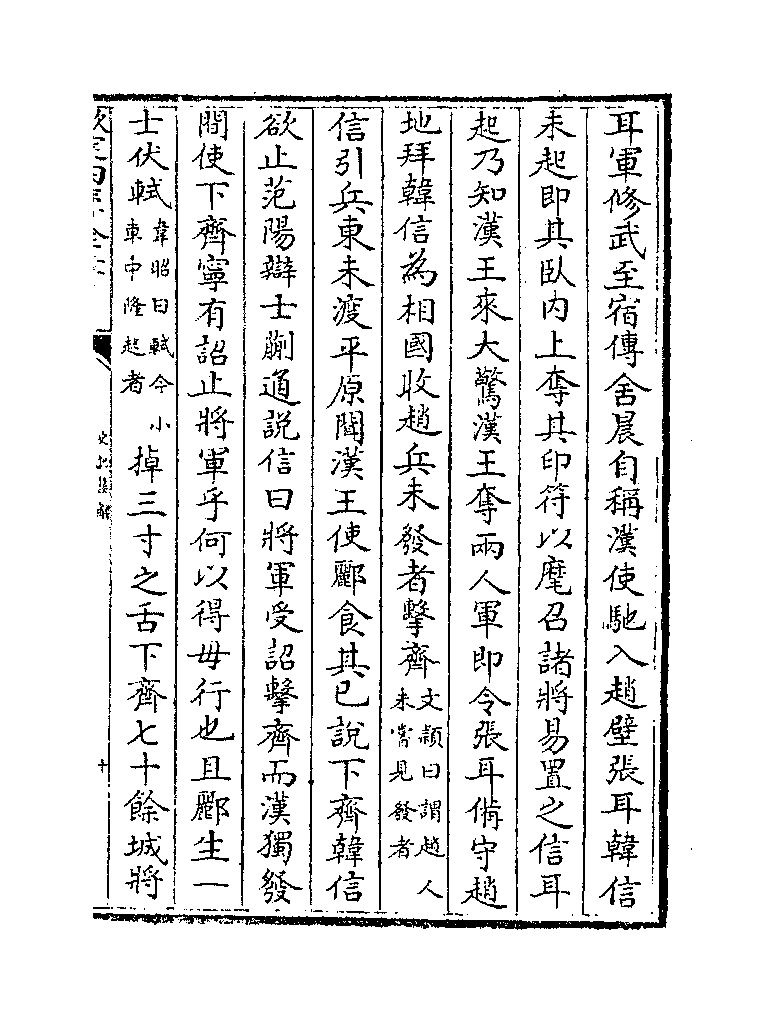 耳軍修武至宿傳舍晨自稱漢使馳入趙壁張耳韓信
未起即其臥内上奪其印符以麾召諸將易置之信耳
起乃知漢王來大驚漢王奪兩人軍即令張耳備守趙
地拜韓信為相國收趙兵未發者擊齊文頴曰謂趙人未嘗見發者
信引兵東未渡平原聞漢王使酈食其已說下齊韓信
欲止范陽辯士蒯通說信曰將軍受詔擊齊而漢獨發
間使下齊寧有詔止將軍乎何以得毋行也且酈生一
士伏軾韋昭曰軾今小車中隆起者掉三寸之舌下齊七十餘城將